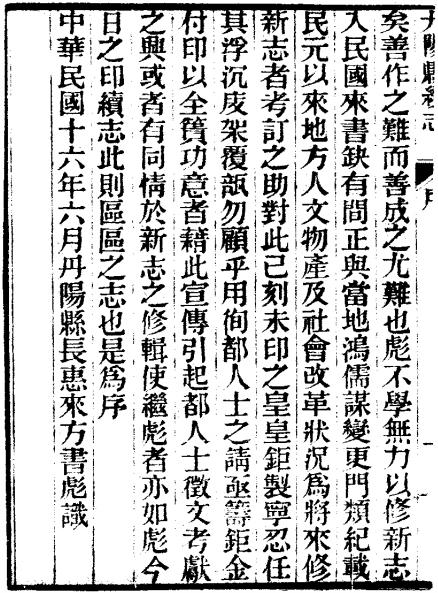 丹陽縣續志
序
矣善作之難而善成之尤難也彪不學無力以修新志
入民國來書缺有間正與當地鴻儒謀變更門類紀載
民元以來地方人文物產及社會改革狀況爲將來修
新志者考訂之助對此已刻未印之皇皇鉅製寧忍任
其浮沉庋架覆瓿勿顧乎用徇都人士之請亟籌鉅金
付印以全簣功意者藉此宣傳引起都人士徵文考獻
之興或者有同情於新志之修輯使繼彪者亦如彪今
日之印續志此則區區之志也是爲序
中華民國十六年六月丹陽縣長惠來方書彪識